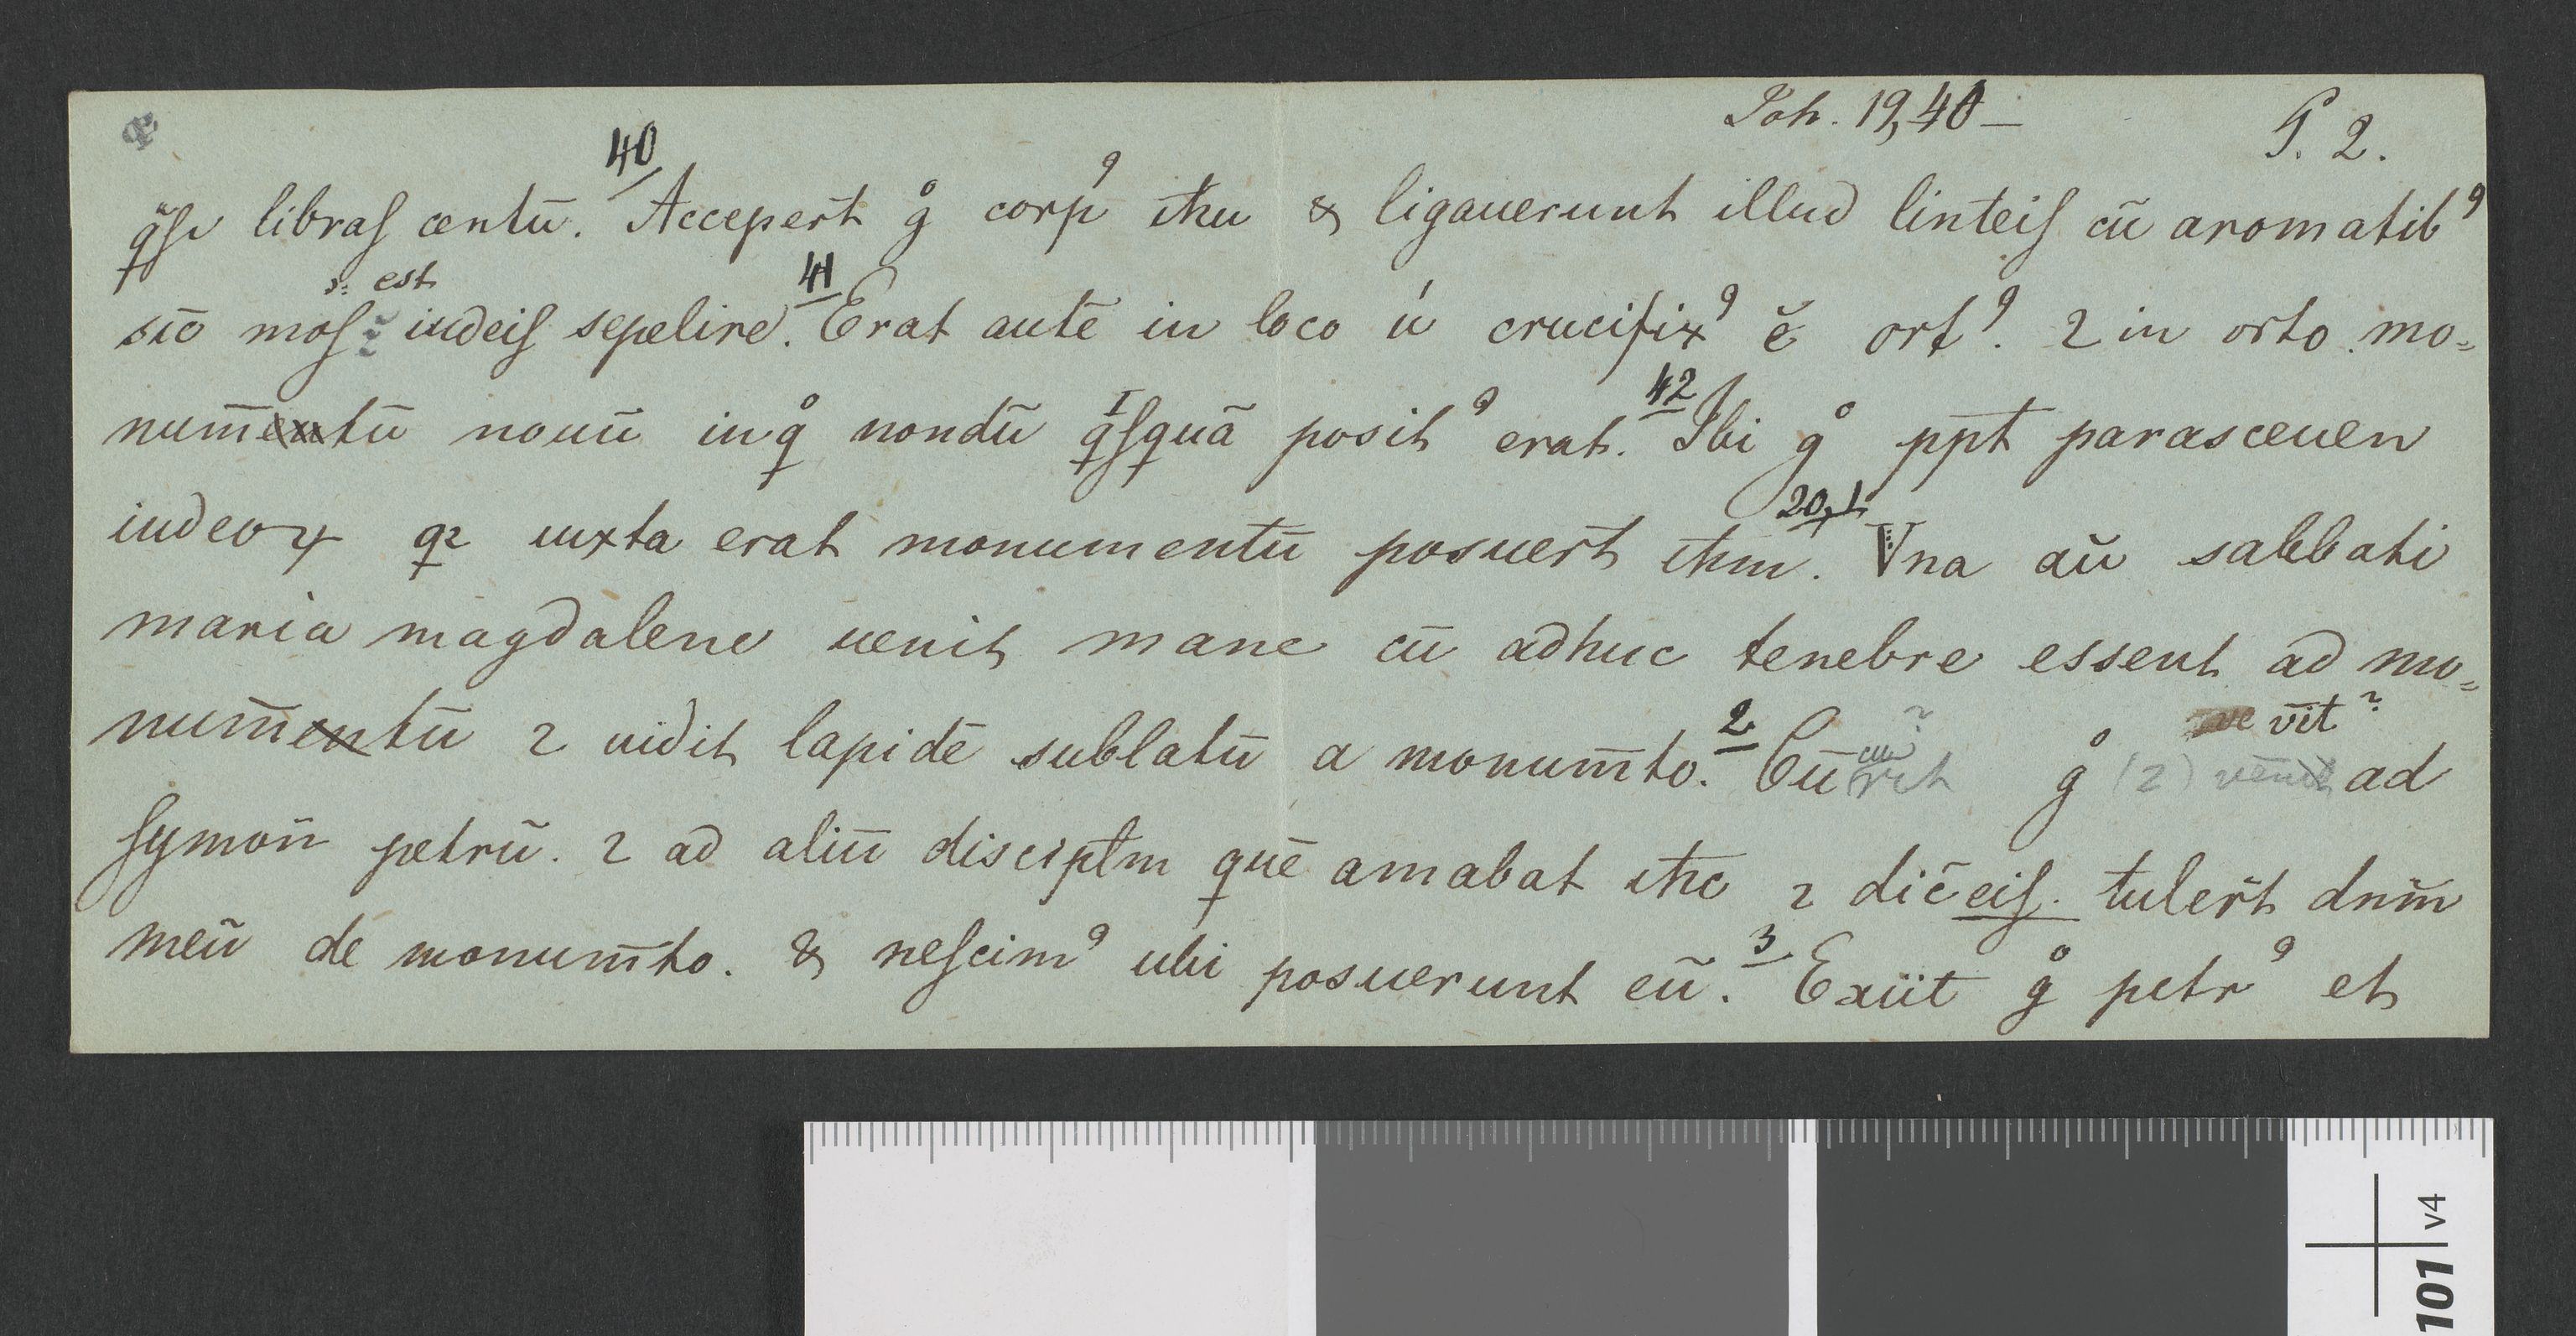 Joh. 19,40 –
P. 2.
40
qͣſi libraſ centū. Accepert̄ gͦ corpꝰ ıħu & ligauerunt illud linteiſ cū aromatibꝰ
s: est 41
sıc̄ moſ iudeiſ sepelire. Erat autē in loco u̍ crucifixꝰ ē ortꝰ. ⁊ in orto mo=
I 42
num̄entū nouū inqͦ nondū qſquā positꝰ erat. Ibi gͦ ppt̄ parasceuen
20,1
iudeoꝝ qꝛ iuxta erat monumentū posuert̄ ıħm. Vna aū sabbati
maria magdalene uenit mane cū adhuc tenebre essent ad mo=
2 ve vīt ?
num̄entū ⁊ uidit lapidē sublatū a monum̄to. Cū rit gͦ (⁊) vēnit ad
ſymoñ petrū. ⁊ ad aliū discipłm quē amabat ıħc ⁊ dic̄ eiſ. tulert̄ dnm̄
3
meū de monum̄to. & neſcimꝰ ubi posuerunt eū. Exiit gͦ petrꝰ et
101 v4